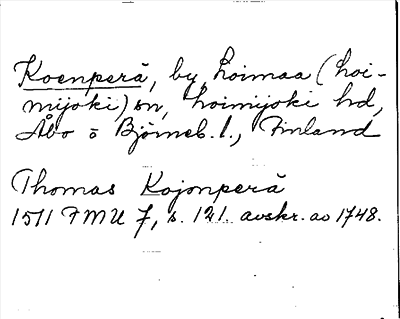 Koenperä, by, Loimaa (Loi-
mijoki) sn, Loimijoki hd,
Åbo o Björneb. l., Finland
Thomas Kojonperä
1511 FMU 7, s. 121. avskr. av 1748.